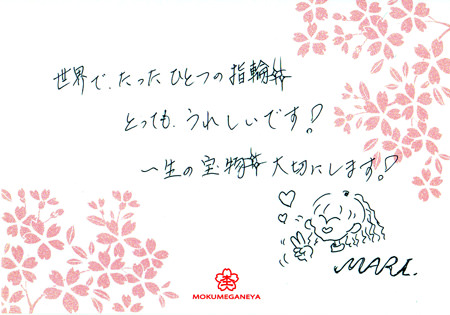 世界で、たったひとつの指輪
とっても、うれしいです!
一生の宝物 大切にします!
MARI.
MOKUMEGANEYA